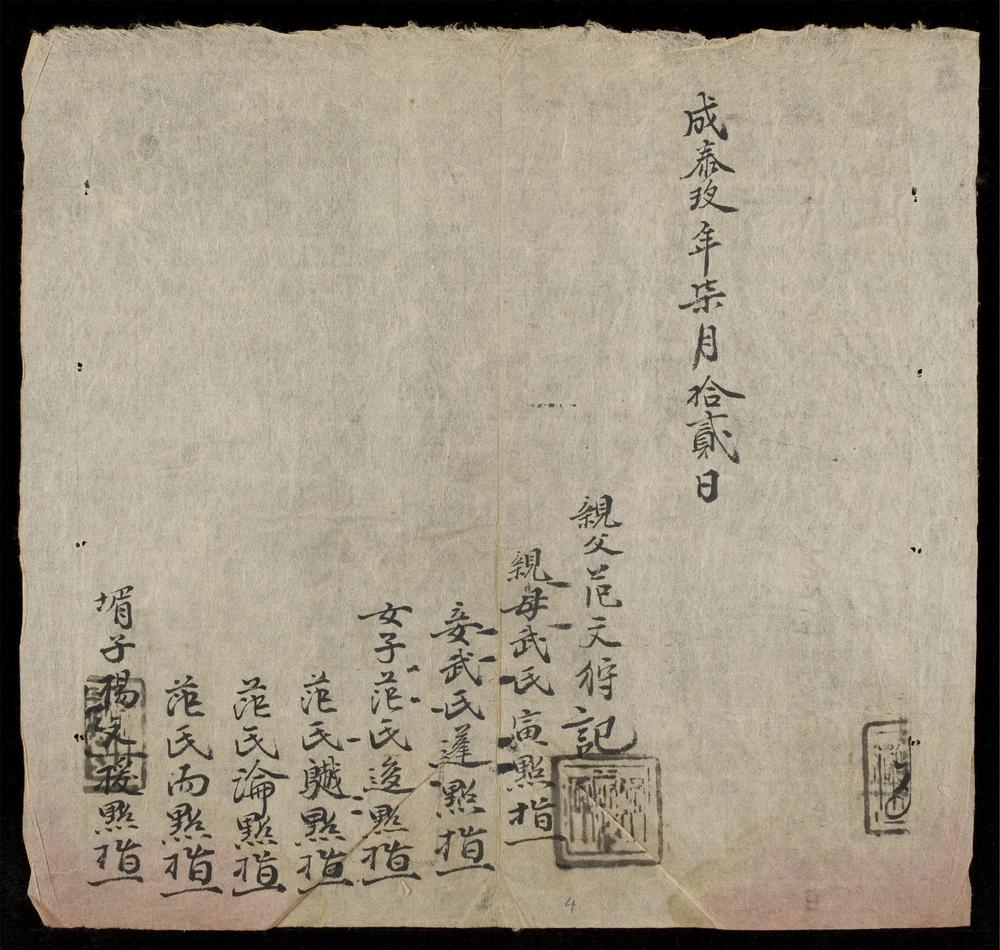 成泰玖年柒月拾貳日
親父范文狩記
親母武氏寅點指
妾武氏蓬點指
女子范氏逡點指
范氏點指
范氏論點指
范氏而點指
壻子楊援點指
4